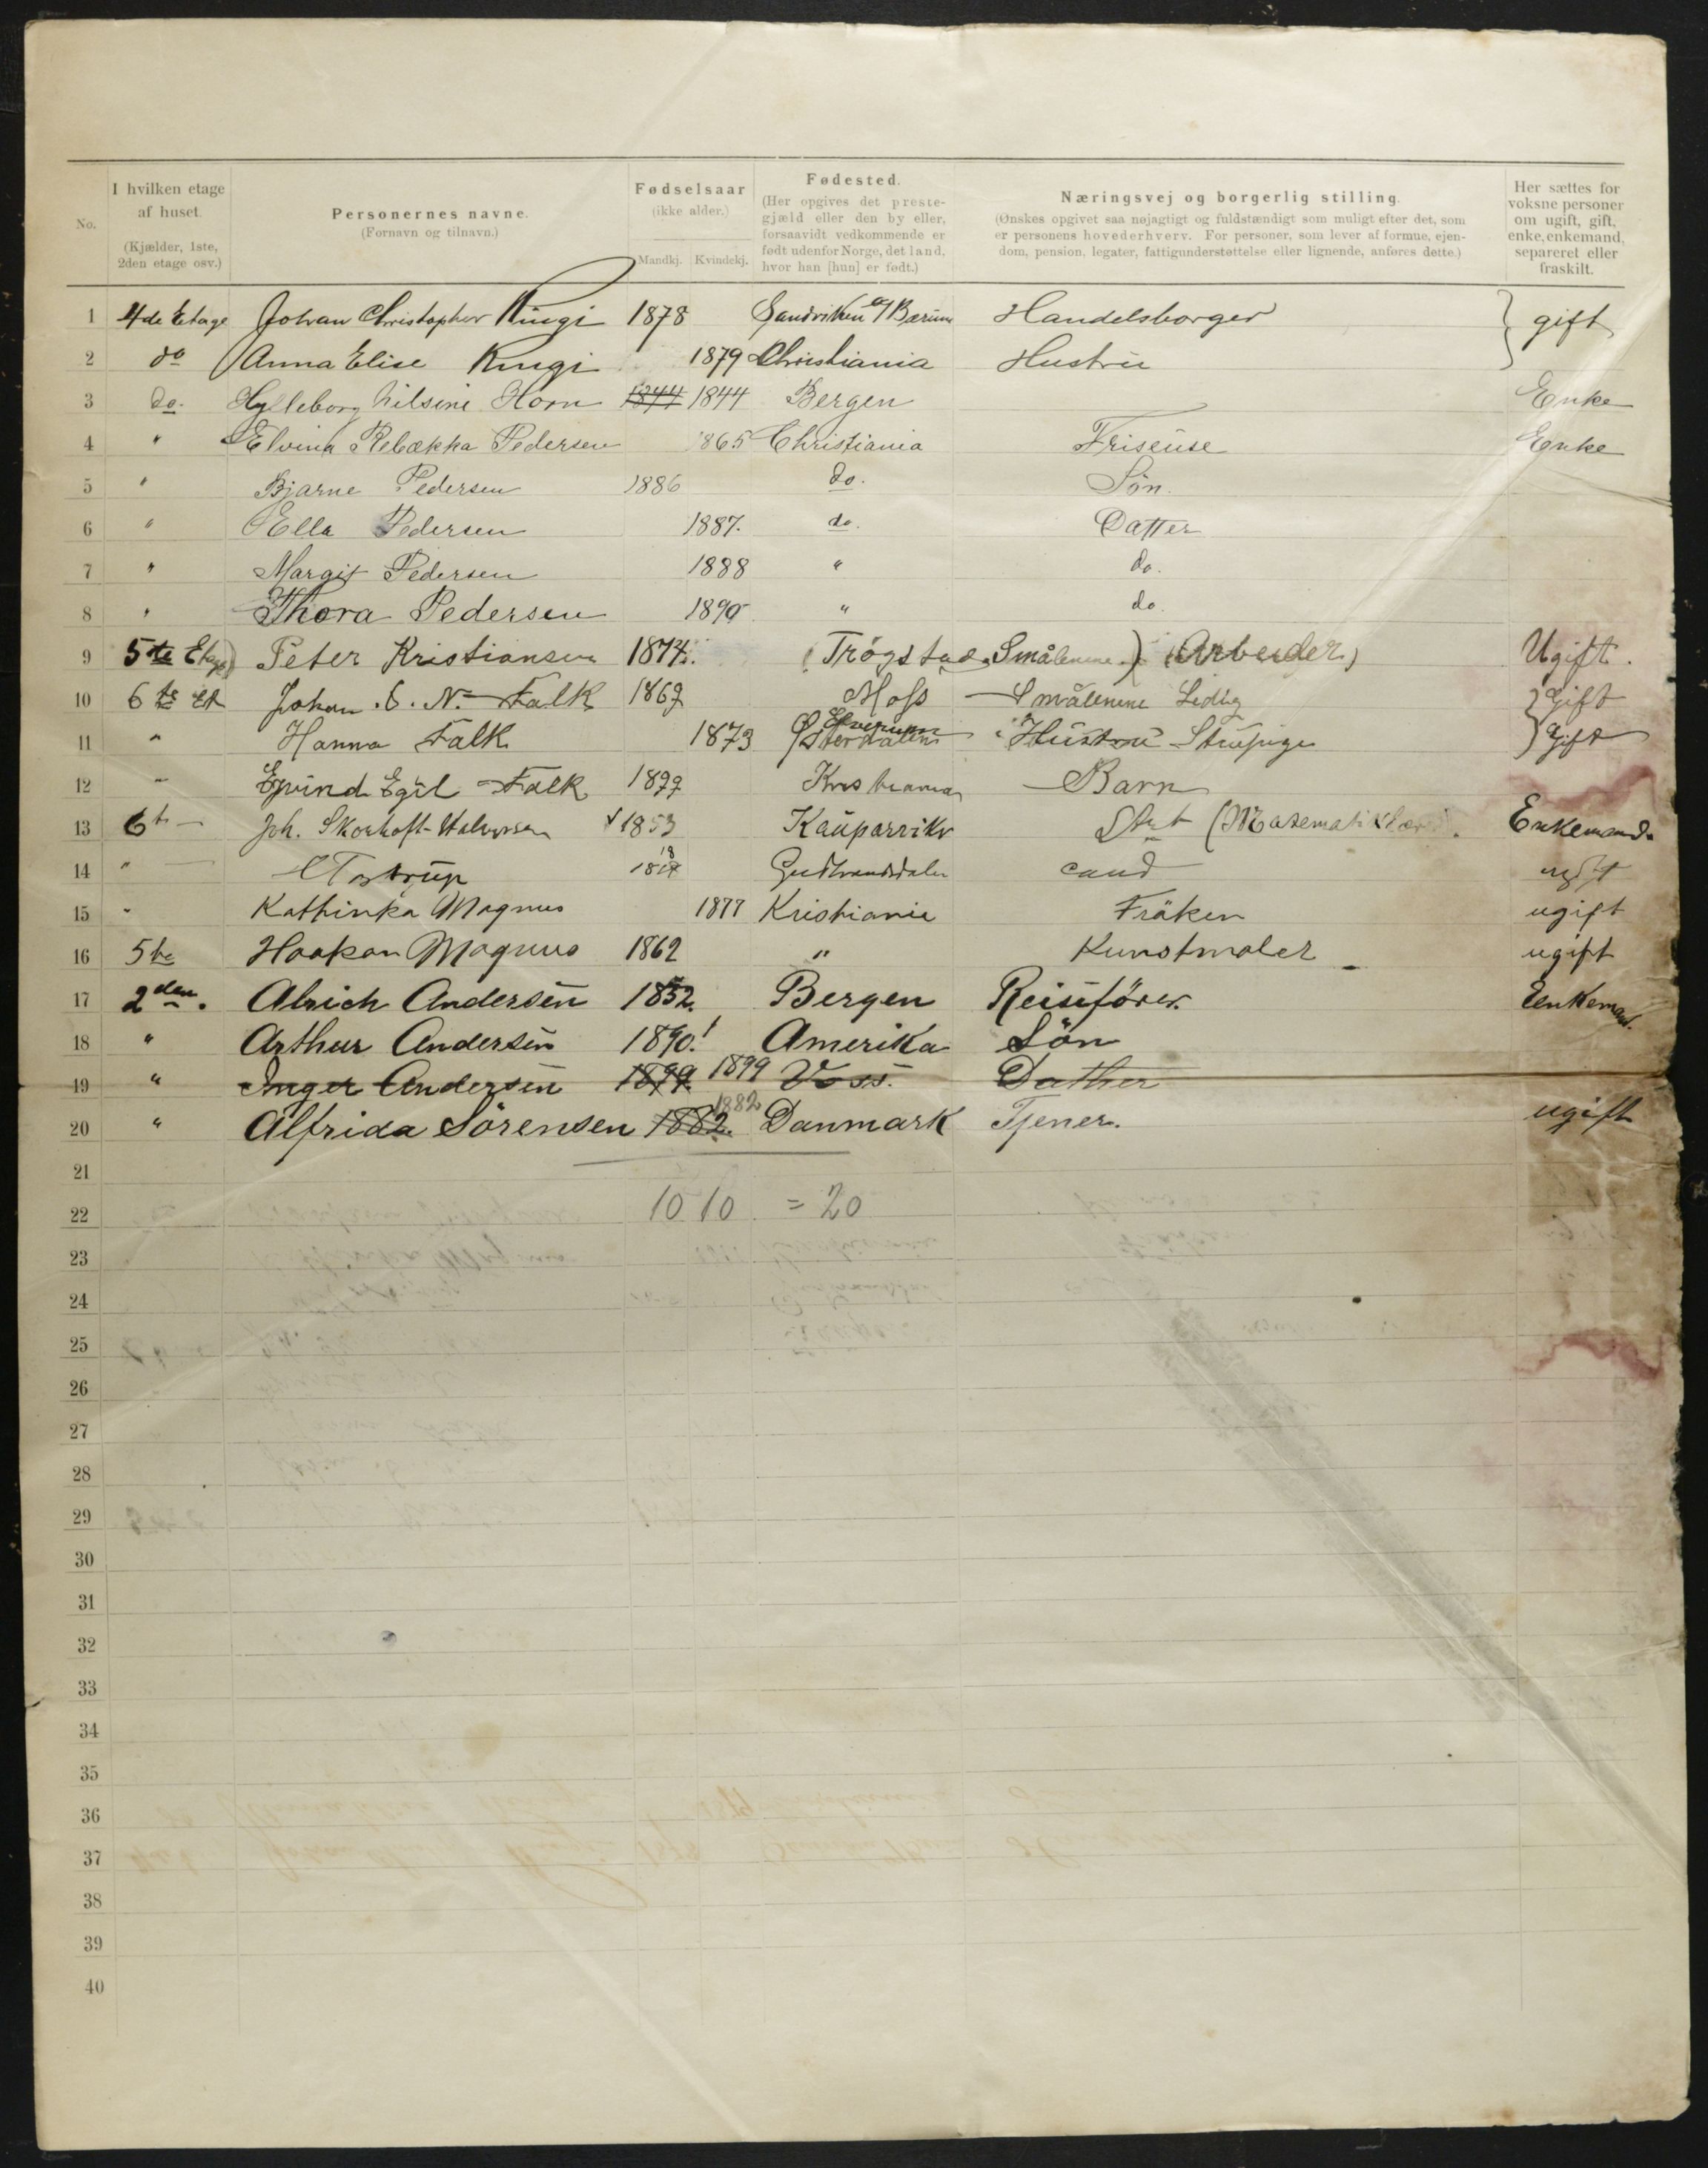 No.
I hvilken etage af huset. (Kjælder, 1ste, 2den etage osv.)
Personernes navne. (Fornavn og tilnavn.)
Fødselsaar (ikke alder.) Mandkj. Kvindekj.
Fødested. (Her opgives det prestegjæld eller den by eller, forsaavidt vedkommende er født udenfor Norge, det land, hvor han [hun] er født.)
Næringsvej og borgerlig stilling. (Ønskes opgivet saa nøjagtigt og fuldstændigt som muligt efter det, som er personens hovederhverv. For personer, som lever af formue, ejendom, pension, legater, fattigunderstøttelse eller lignende, anføres dette.)
Her sættes for voksne personer om ugift, gift, enke, enkemand, separeret eller fraskilt.
1 4de Etage Johan Christopher Ringi 1878 Sandviken Bærum Handelsborger } gift
2 do Anna Elise Ringi 1879 Christiania Hustru
3 do. Hylleborg Nilsine Horn 1844 1844 Bergen Enke
4 " Elvina Rebækka Pedersen 1865 Christiania Friseuse Enke
5 " Bjarne Pedersen 1886 do. Sön.
6 " Ella Pedersen 1887. do. Datter
7 " Margit Pedersen 1888 " do.
8 " Thora Pedersen 1890 " do.
9 5te Etage) Peter Kristiansen 1874. (Trögstad. Smålenene.) (Arbeider) Ugift.
10 6te Et Johan. C. N. Falk 1869 Moss Smålenene Ledig } Gift
11 " Hanna Falk 1873 Elverum Østerdalen Hustru } Gift
12 " Ejvind Egil Falk 1899 Kristiania Barn
13 6te Joh. 1853 Enkemand.
14 " Tostrup 18 Gudbrandsdalen cand ugift
15 " Kathinka Magnus 1877 Kristiania Fröken ugift
16 5te Haakon Magnus 1862 " Kunstmaler ugift
17 2den. Alrich Andersen 1852. Bergen Reisefører. Eenkemand.
18 " Arthur Andersen 1890! Amerika Sön
19 " Inger Andersen 1899. 1899 Voss. Dather
20 " Alfrida Sörensen 1882. 1882 Danmark Tjener. ugift
21
22 10 10 = 20
23
24
25
26
27
28
29
30
31
32
33
34
35
36
37
38
39
40